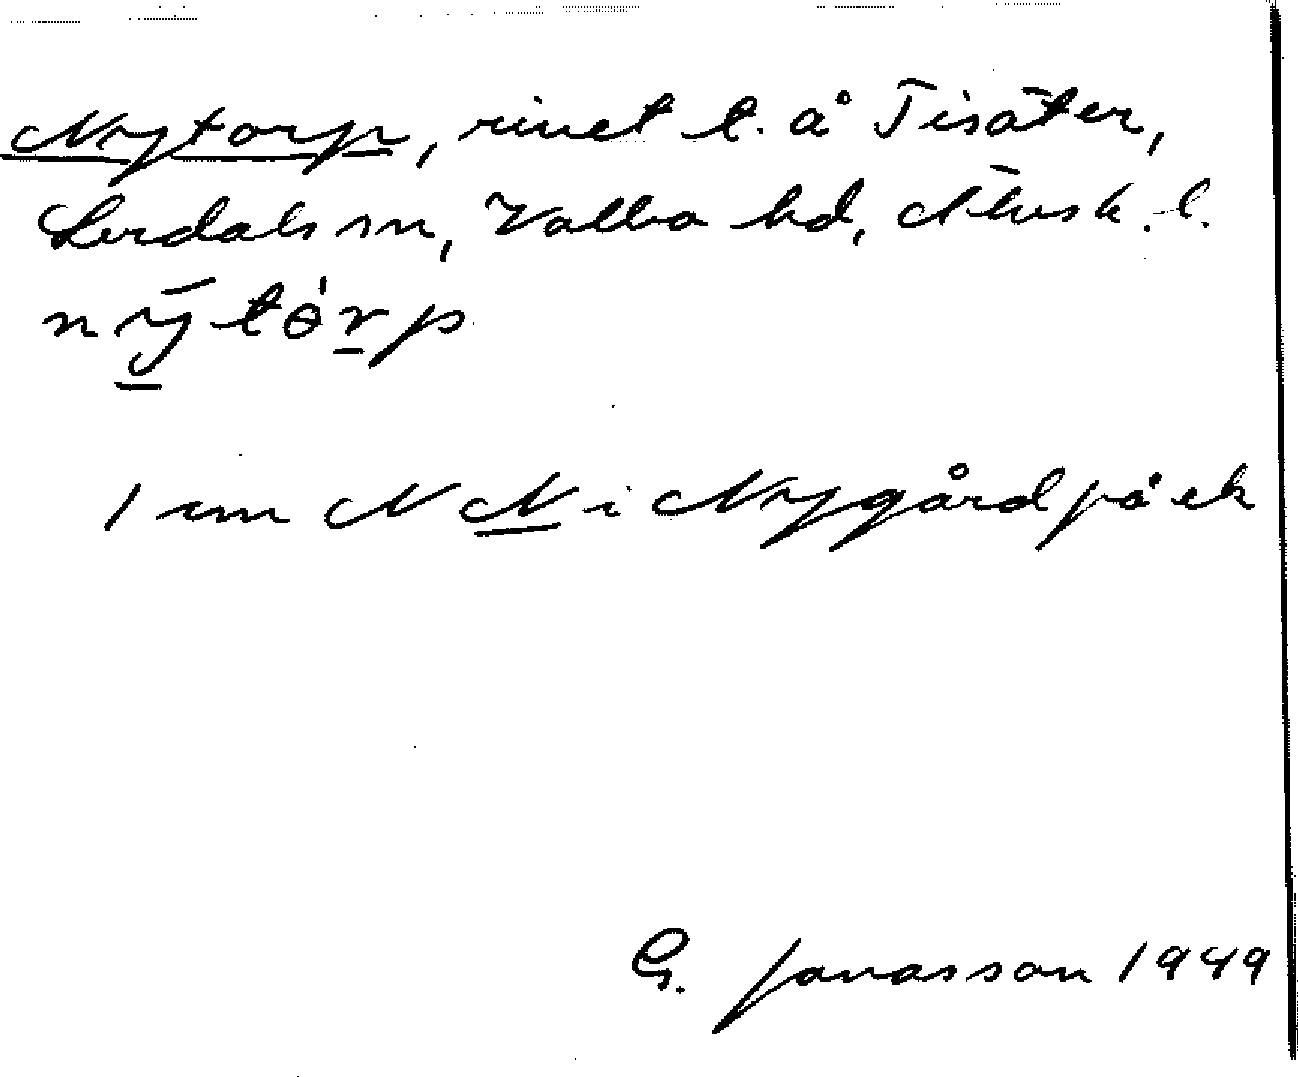 Nytorp, rivet t. å Tisäter,
Lerdals sn, Valbo hd, Älvsb. l.
nȳ̱tὸṟp
1 cm N N i Nygård på ek
G. Jonasson 1949